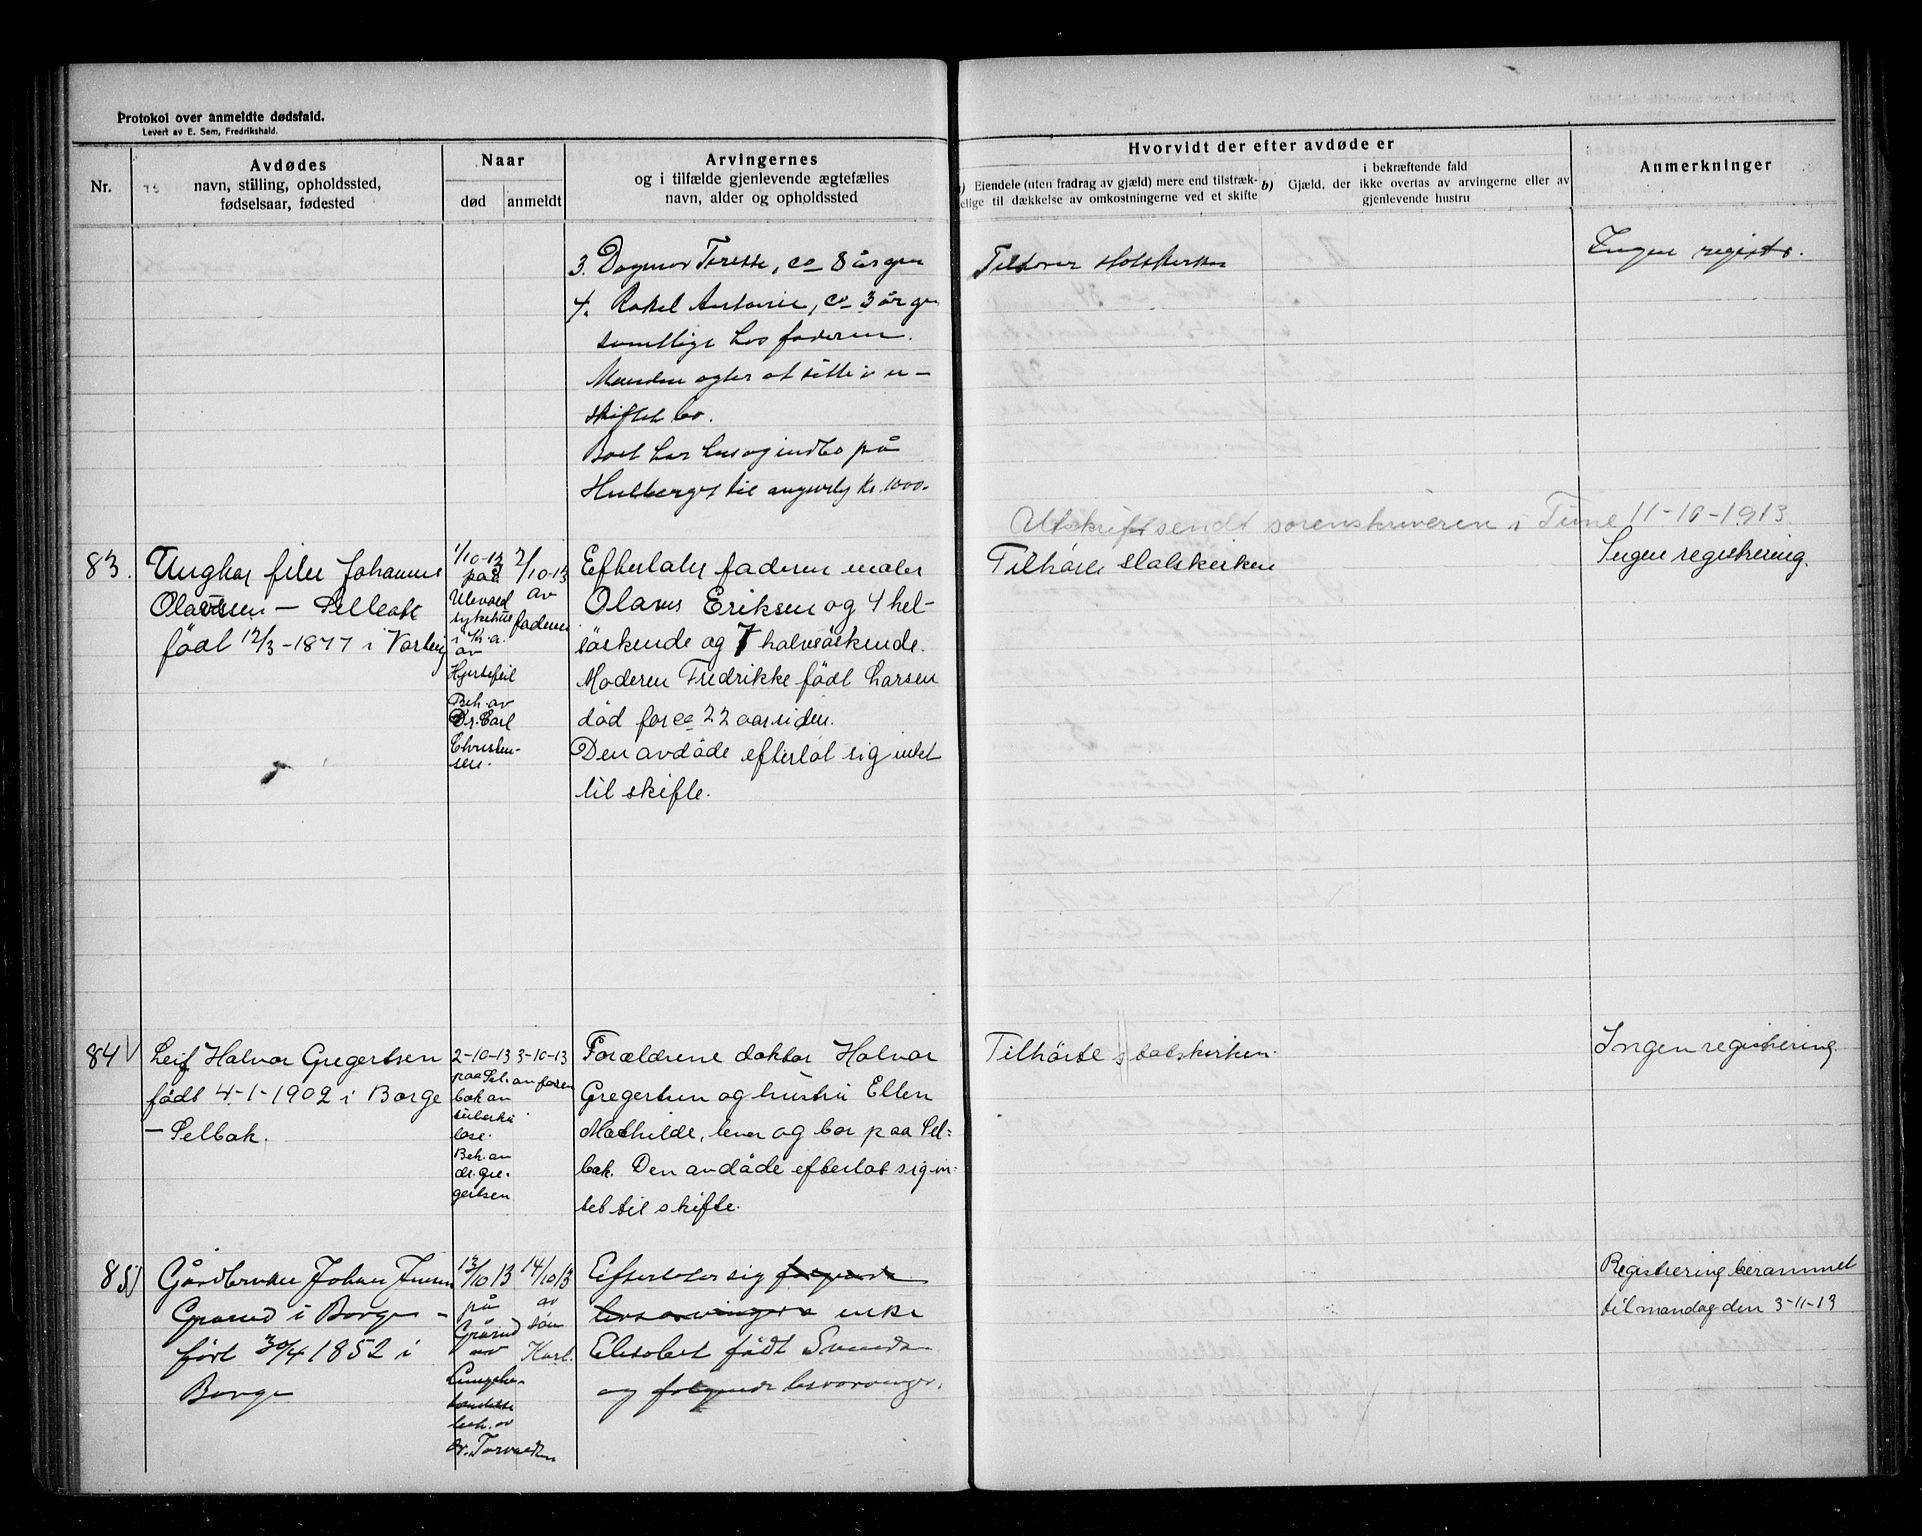 Protokol over anmeldte dødsfald.
Levert av E. Sem, Fredrikshald.
Nr.
Avdødes
navn, stilling, opholdssted,
fødselsaar, fødested
Naar
død
anmeldt
Arvingernes
og i tilfælde gjenlevende ægtefælles
navn, alder og opholdssted
Hvorvidt der efter avdøde er
Eiendele (uten fradrag av gjæld) mere end tilstræk-
elige til dækkelse av omkostningerne ved et skifte
b) Gjæld, der
i bekræftende fald
ikke overtas av arvingerne eller av
gjenlevende hustru
Anmerkninger
3. Dagmar, ca 8 år gm
4. Rakel Antonie, ca 3 år gm
samtlige hos faderen.
Manden agter at sitte i u-
skiftet bo.
Boet har hus og indbo på
til Kr. 1000.-
statskirken
Ingen registr.
Utskrift sendt sorenskriveren i Tune 11-10-1913.
83.
Ungkar Johannes
Olavesen — Selbak
født 12/3-1877 i Varteig
1/10-13
paa
Ulevaal
sykehus
i Kr.a.
av
Hjertefeil
Beh. av
Dr. Carl
Christen-
sen.
2/10-13
av
faderen
Efterlater faderen maler
Olaves Eriksen og 4 hel-
söskende og 7 halvsöskende.
Moderen Fredrikke født Larsen
död for ca 22 aar siden.
Den avdöde efterlot sig intet
til skifte.
Tilhörte statskirken
Ingen registrering.
84
Leif Halvor Gregertsen
født 4-1-1902 i Borge
— Selbak.
2-10-13
paa Sel-
bak av
tuberku
lose.
Beh. av
dr. Gre-
gertsen
3-10-13
av faren
Forældrene doktor Halvor
Gregertsen og hustru Ellen
Mathilde, lever og bor paa Sel-
bak. Den avdöde efterlot sig in-
tet til skifte.
Tilhörte statskirken.
Ingen registrering.
85
Gårdbruker Johan Jensen
i Borge —
født 30/4 1852 i
Borge
13/10 13
på
av
Lungebe-
tændelse
beh. av
dr. Torvaldsen
14/10 13
av
søn
Karl.
Efterlater sig følgende
livsarvinger enke
Elisabet født
og følgende livsarvinger.
Registrering berammet
til mandag den 3-11-13